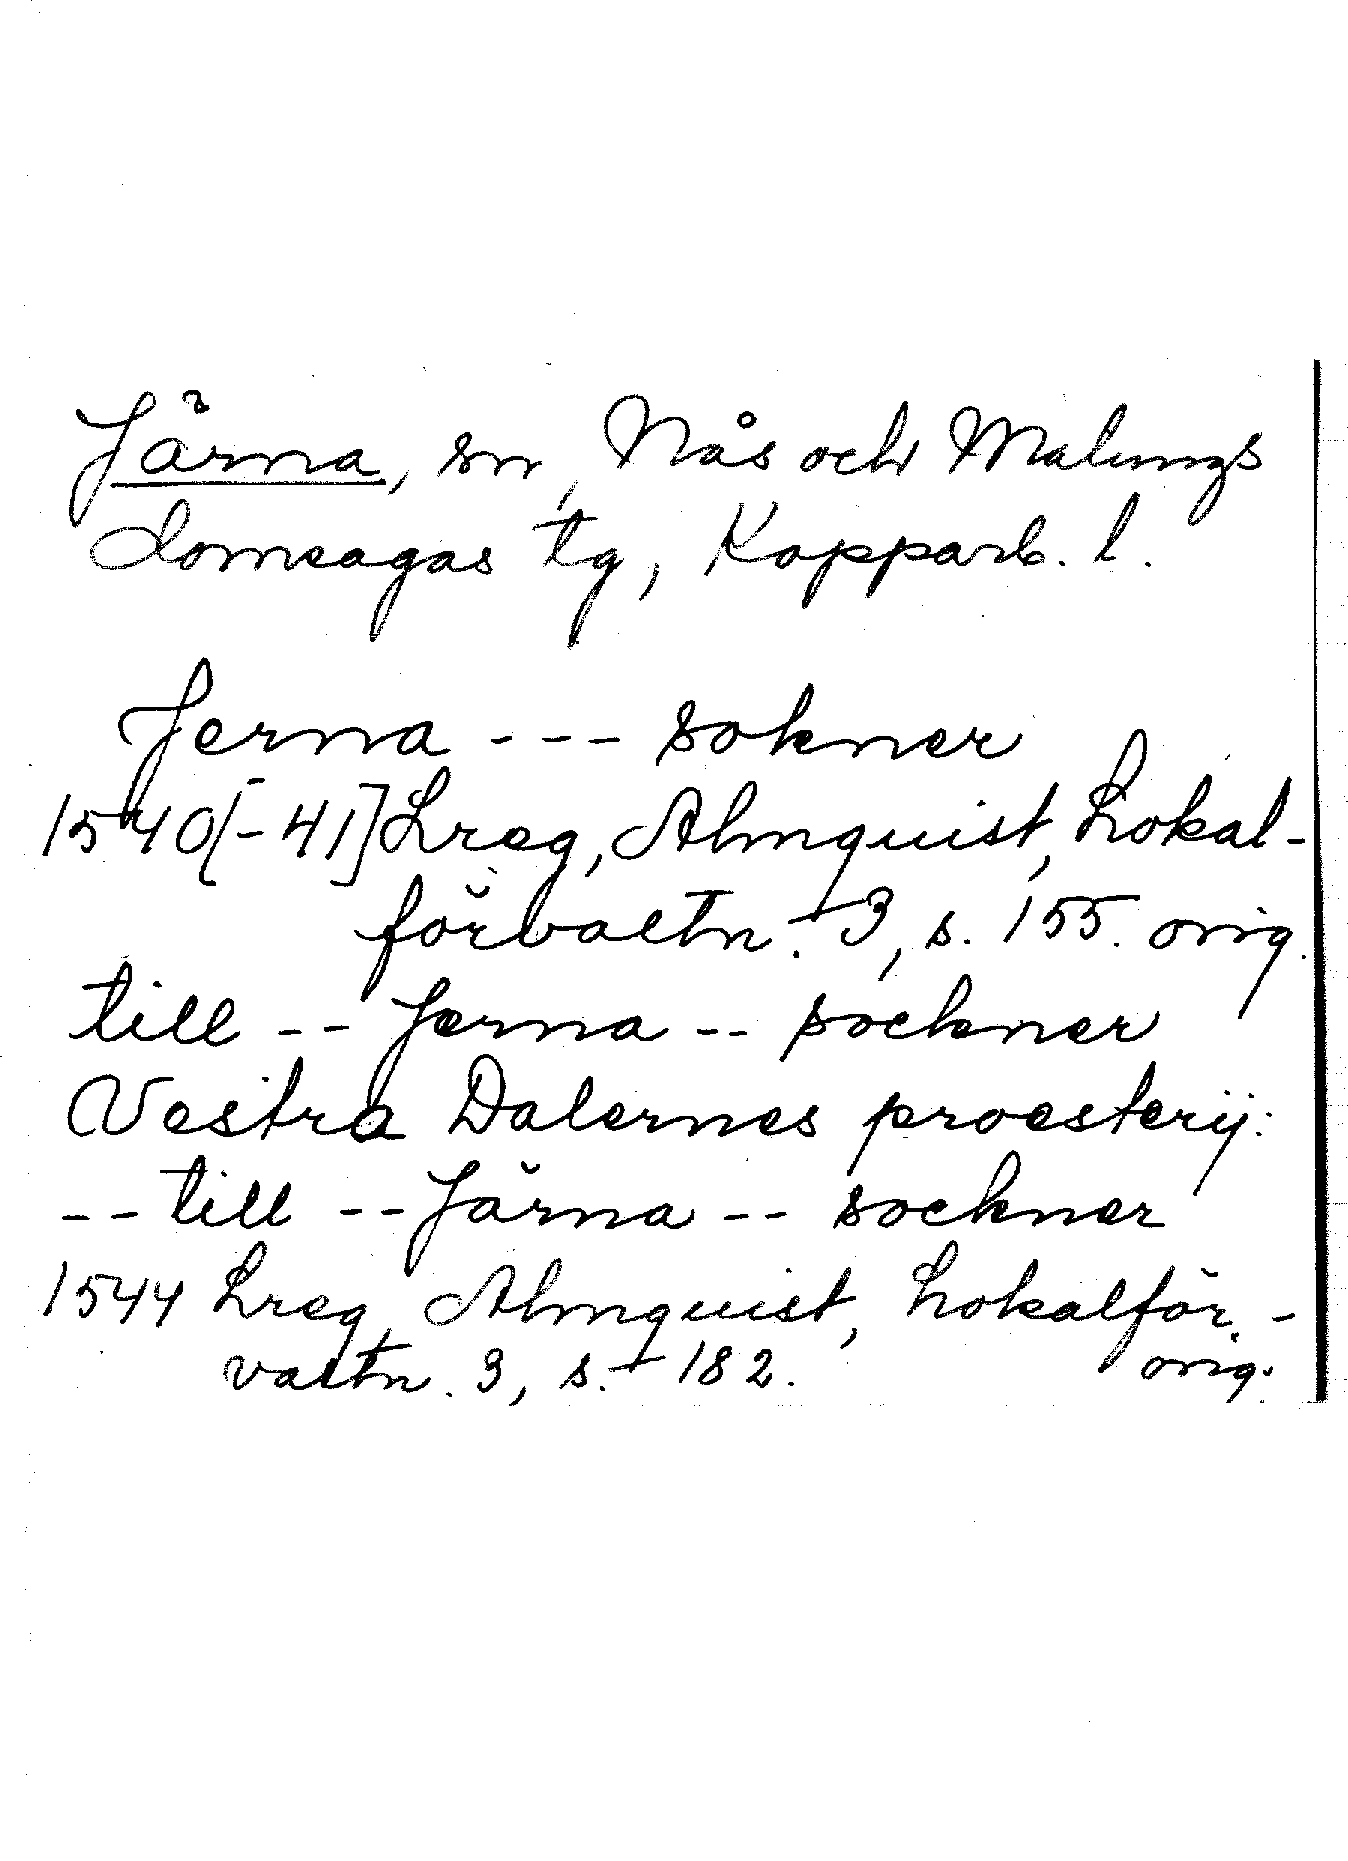 Järna, sn, Nås och Malungs
domsagas tg, Kopparb. l.
Jerna --- sokner
1540[-41] Lreg, Almquist, Lokal-
förvaltn. 3, s. 155. orig.
till -- Jerna -- sockner
Vestra Dalernes proesterij:
-- till -- Järna -- sockner
1544 Lreg, Almquist, Lokalför-
valtn. 3, s. 182. orig.